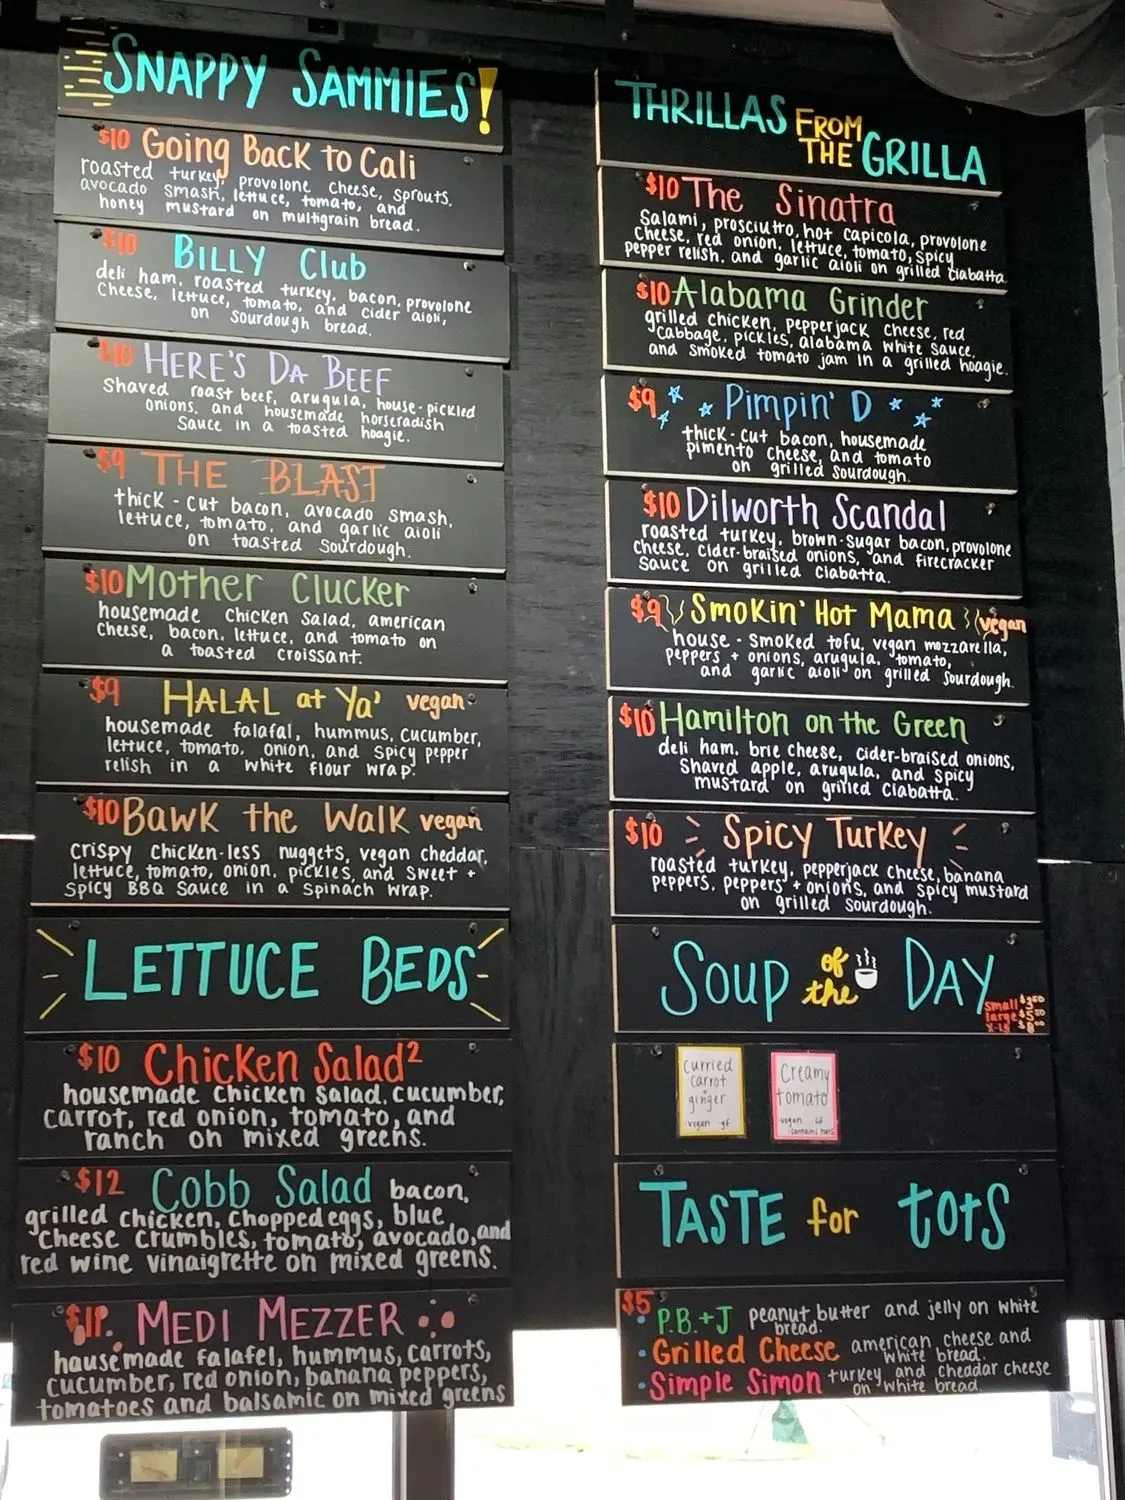 SNAPPY SAMMIES!
$10 Going Back to Cali
roasted turkey, provolone cheese, sprouts,
avocado smash, lettuce, tomato, and
honey mustard on multigrain bread.
$10 BILLY Club
deli ham, roasted turkey, bacon, provolone
cheese, lettuce, tomato, and cider aioli,
on sourdough bread.
$10 HERE'S DA BEEF
shaved roast beef, arugula, house-pickled
onions, and housemade horseradish
sauce in a toasted hoagie.
$9 THE BLAST
thick-cut bacon, avocado smash,
lettuce, tomato, and garlic aioli
on toasted sourdough.
$10 Mother Clucker
housemade chicken salad, american
cheese, bacon, lettuce, and tomato on
a toasted croissant.
$9 HALAL at Ya' vegan
housemade falafal, hummus, cucumber,
lettuce, tomato, onion, and spicy pepper
relish in a white flour wrap.
$10 Bawk the Walk vegan
crispy chicken-less nuggets, vegan cheddar,
lettuce, tomato, onion, pickles, and sweet +
spicy BBQ sauce in a spinach wrap.
LETTUCE BEDS
$10 Chicken Salad²
housemade chicken salad, cucumber,
carrot, red onion, tomato, and
ranch on mixed greens.
$12 Cobb Salad bacon,
grilled chicken, chopped eggs, blue
cheese crumbles, tomato, avocado, and
red wine vinaigrette on mixed greens.
MEDI MEZZER
housemade falafel, hummus, carrots,
cucumber, red onion, banana peppers,
tomatoes and balsamic on mixed greens
THRILLAS FROM THE GRILLA
$10 The Sinatra
Salami, prosciutto, hot capicola, provolone
cheese, red onion, lettuce, tomato, spicy
pepper relish, and garlic aioli on grilled ciabatta.
$10 Alabama Grinder
grilled chicken, pepperjack cheese, red
cabbage, pickles, alabama white sauce,
and smoked tomato jam in a grilled hoagie.
$9 Pimpin' D
thick-cut bacon, housemade
pimento cheese, and tomato
on grilled sourdough.
$10 Dilworth Scandal
roasted turkey, brown-sugar bacon, provolone
cheese, cider-braised onions, and firecracker
sauce on grilled ciabatta.
$9 Smokin' Hot Mama vegan
house-smoked tofu, vegan mozzarella,
peppers + onions, arugula, tomato,
and garlic aioli on grilled sourdough.
$10 Hamilton on the Green
deli ham, brie cheese, cider-braised onions,
shaved apple, arugula, and spicy
mustard on grilled ciabatta.
$10 Spicy Turkey
roasted turkey, pepperjack cheese, banana
peppers, peppers + onions, and spicy mustard
on grilled sourdough.
SOUP of the DAY
small $3.50
large $5.50
X-L $8.00
curried
carrot
ginger
vegan gf
Creamy
tomato
vegan GF
contains nuts
TASTE for tots
$5
P.B.+J peanut butter and jelly on white
bread.
Grilled Cheese american cheese and
white bread.
Simple Simon turkey and cheddar cheese
on white bread.